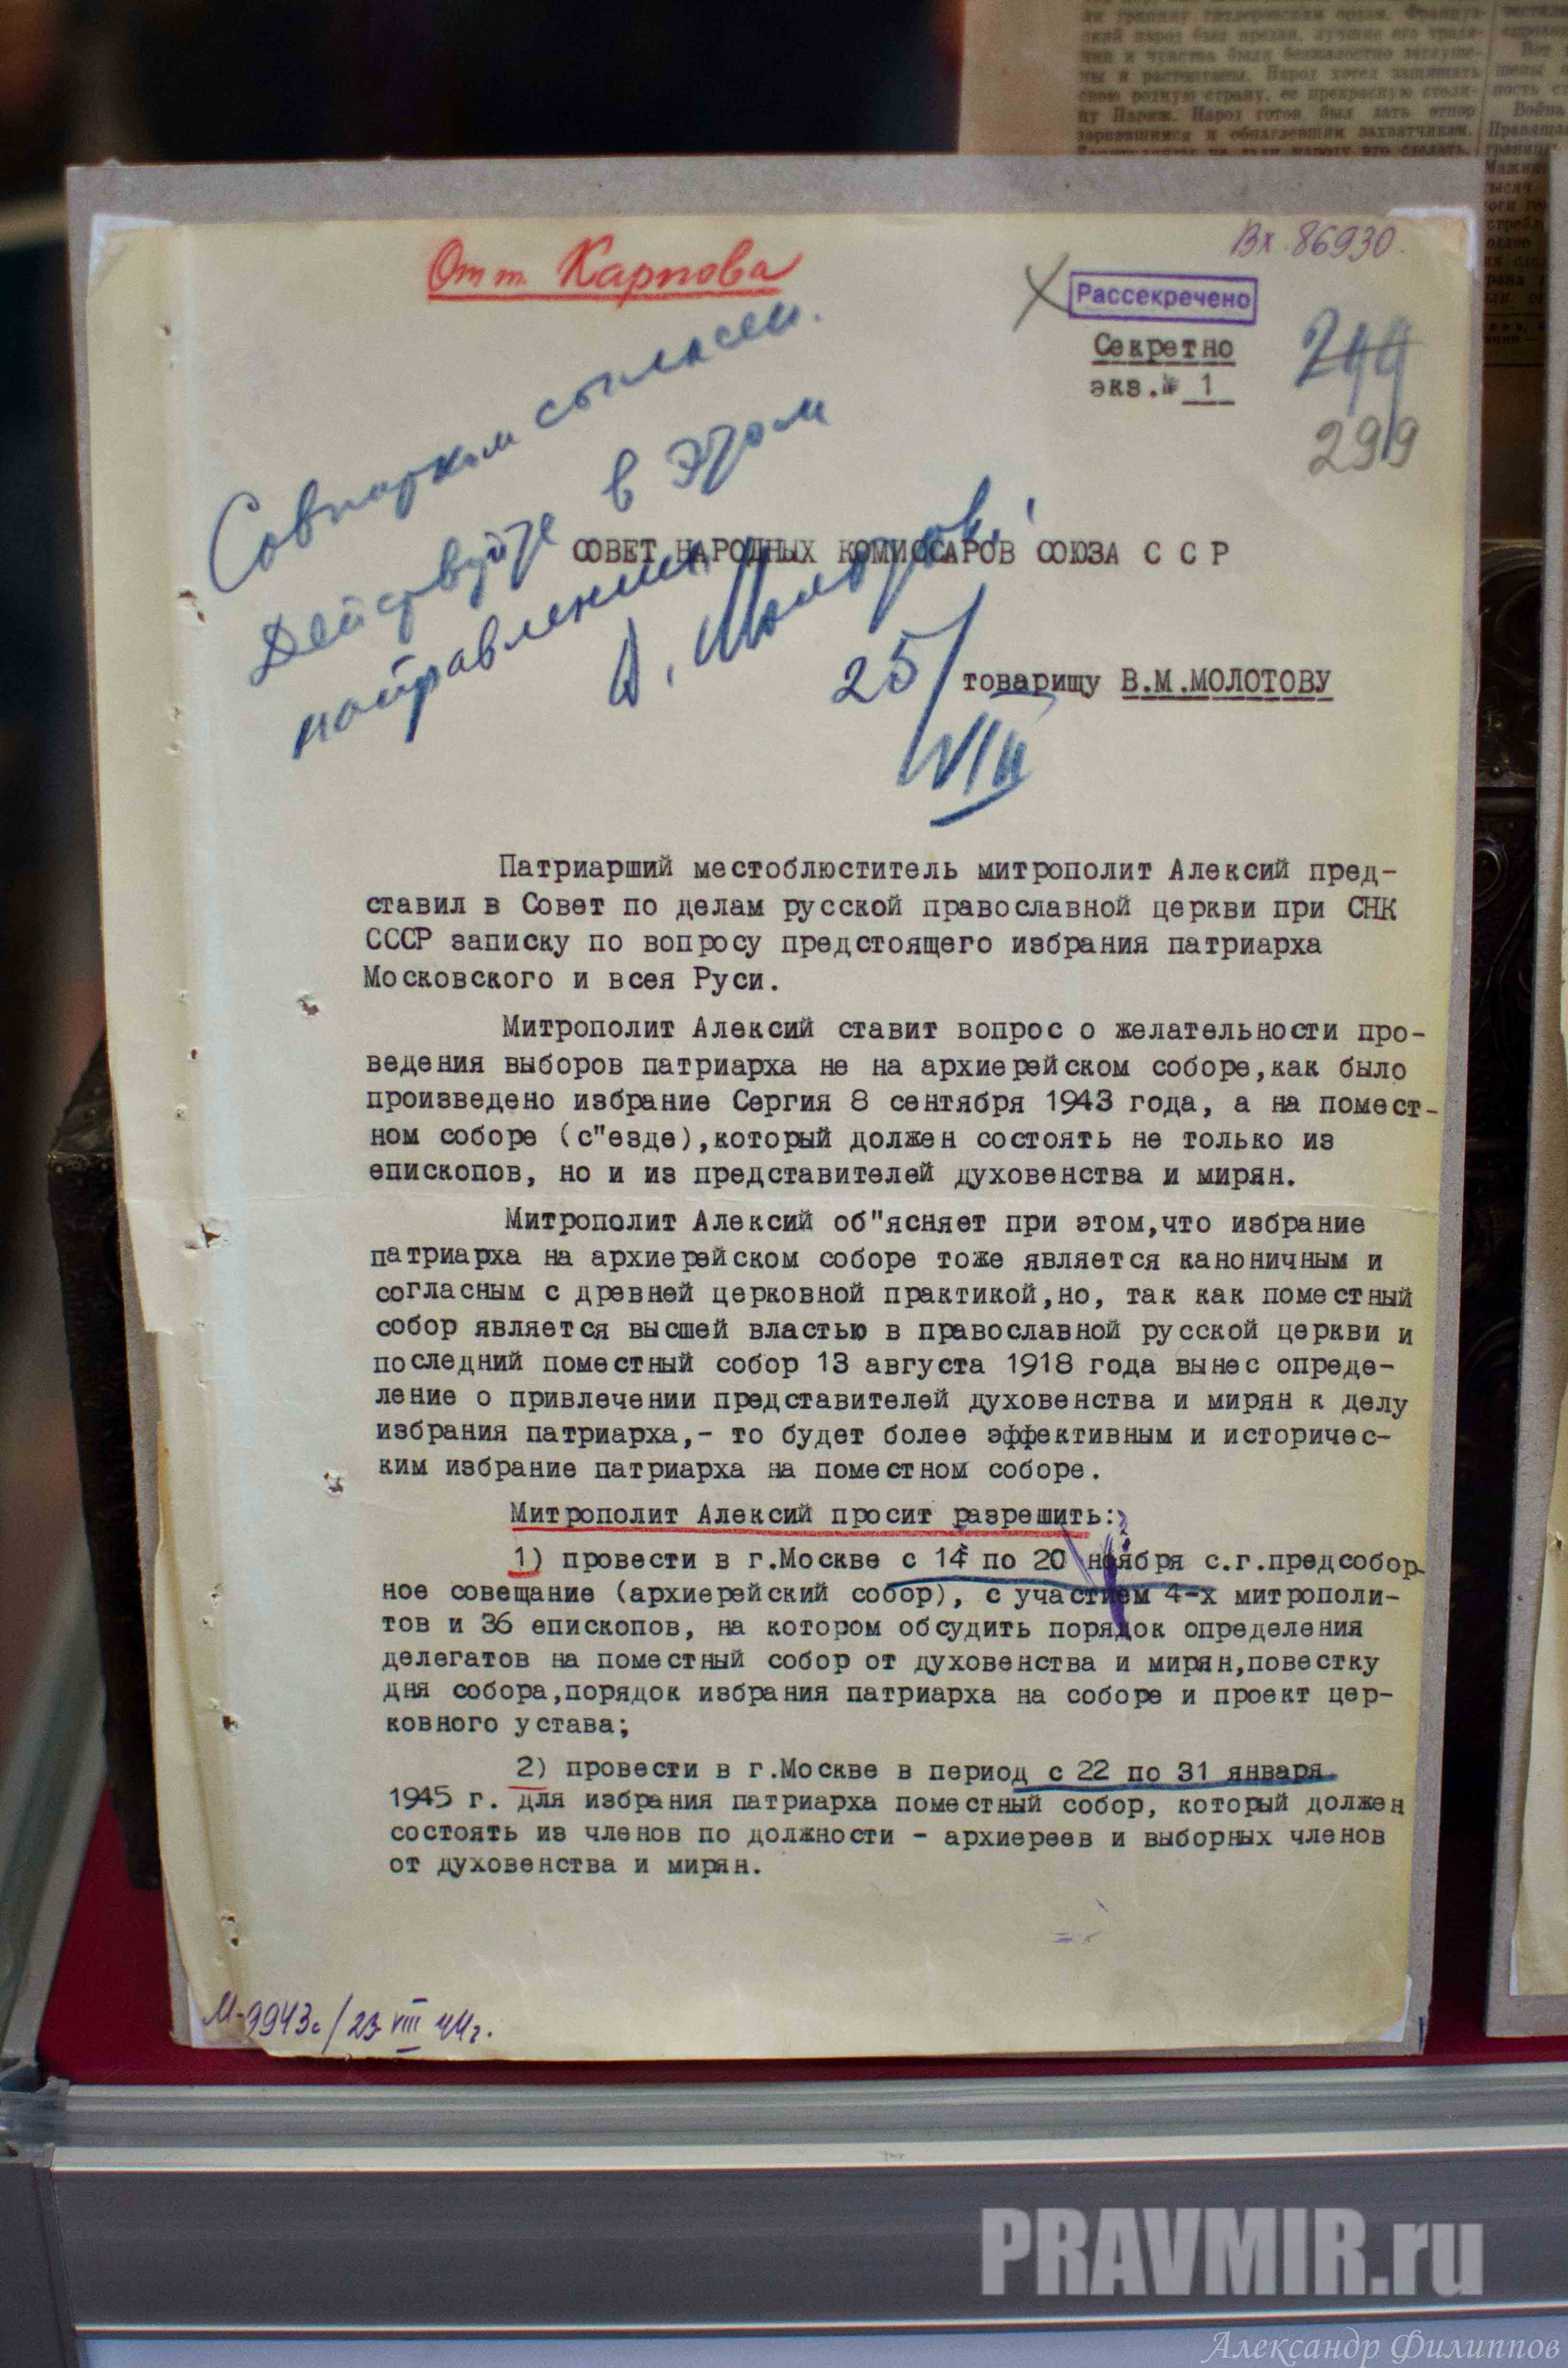 ли границу гитлеровским ордам. Француз-
ский народ был предан, лучшие его тради-
ции и чувства были безжалостно заглуше-
ны и растоптаны. Народ хотел защищать
свою родную страну, ее прекрасную столи-
цу Париж. Народ готов был дать отпор
зарвавшимся и обнаглевшим захватчикам.
Вх 86930
От т. Карпова
Рассекречено
Секретно
экз.№ 1
244
299
Совнарком согласен.
Действуйте в этом
направлении
В. Молотов
25/VIII
СОВЕТ НАРОДНЫХ КОМИССАРОВ СОЮЗА С С Р
товарищу В.М.МОЛОТОВУ
Патриарший местоблюститель митрополит Алексий пред-
ставил в Совет по делам русской православной церкви при СНК
СССР записку по вопросу предстоящего избрания патриарха
Московского и всея Руси.
Митрополит Алексий ставит вопрос о желательности про-
ведения выборов патриарха не на архиерейском соборе,как было
произведено избрание Сергия 8 сентября 1943 года, а на помест-
ном соборе (с"езде),который должен состоять не только из
епископов, но и из представителей духовенства и мирян.
Митрополит Алексий об"ясняет при этом,что избрание
патриарха на архиерейском соборе тоже является каноничным и
согласным с древней церковной практикой,но, так как поместный
собор является высшей властью в православной русской церкви и
последний поместный собор 13 августа 1918 года вынес опреде-
ление о привлечении представителей духовенства и мирян к делу
избрания патриарха,- то будет более эффективным и историчес-
ким избрание патриарха на поместном соборе.
Митрополит Алексий просит разрешить:
1) провести в г.Москве с 14 по 20 ноября с.г.предсобор-
ное совещание (архиерейский собор), с участием 4-х митрополи-
тов и 36 епископов, на котором обсудить порядок определения
делегатов на поместный собор от духовенства и мирян,повестку
дня собора,порядок избрания патриарха на соборе и проект цер-
ковного устава;
2) провести в г.Москве в период с 22 по 31 января
1945 г. для избрания патриарха поместный собор, который должен
состоять из членов по должности - архиереев и выборных членов
от духовенства и мирян.
М-9943с/23 VIII 44г.
PRAVMIR.ru
Александр Филиппов